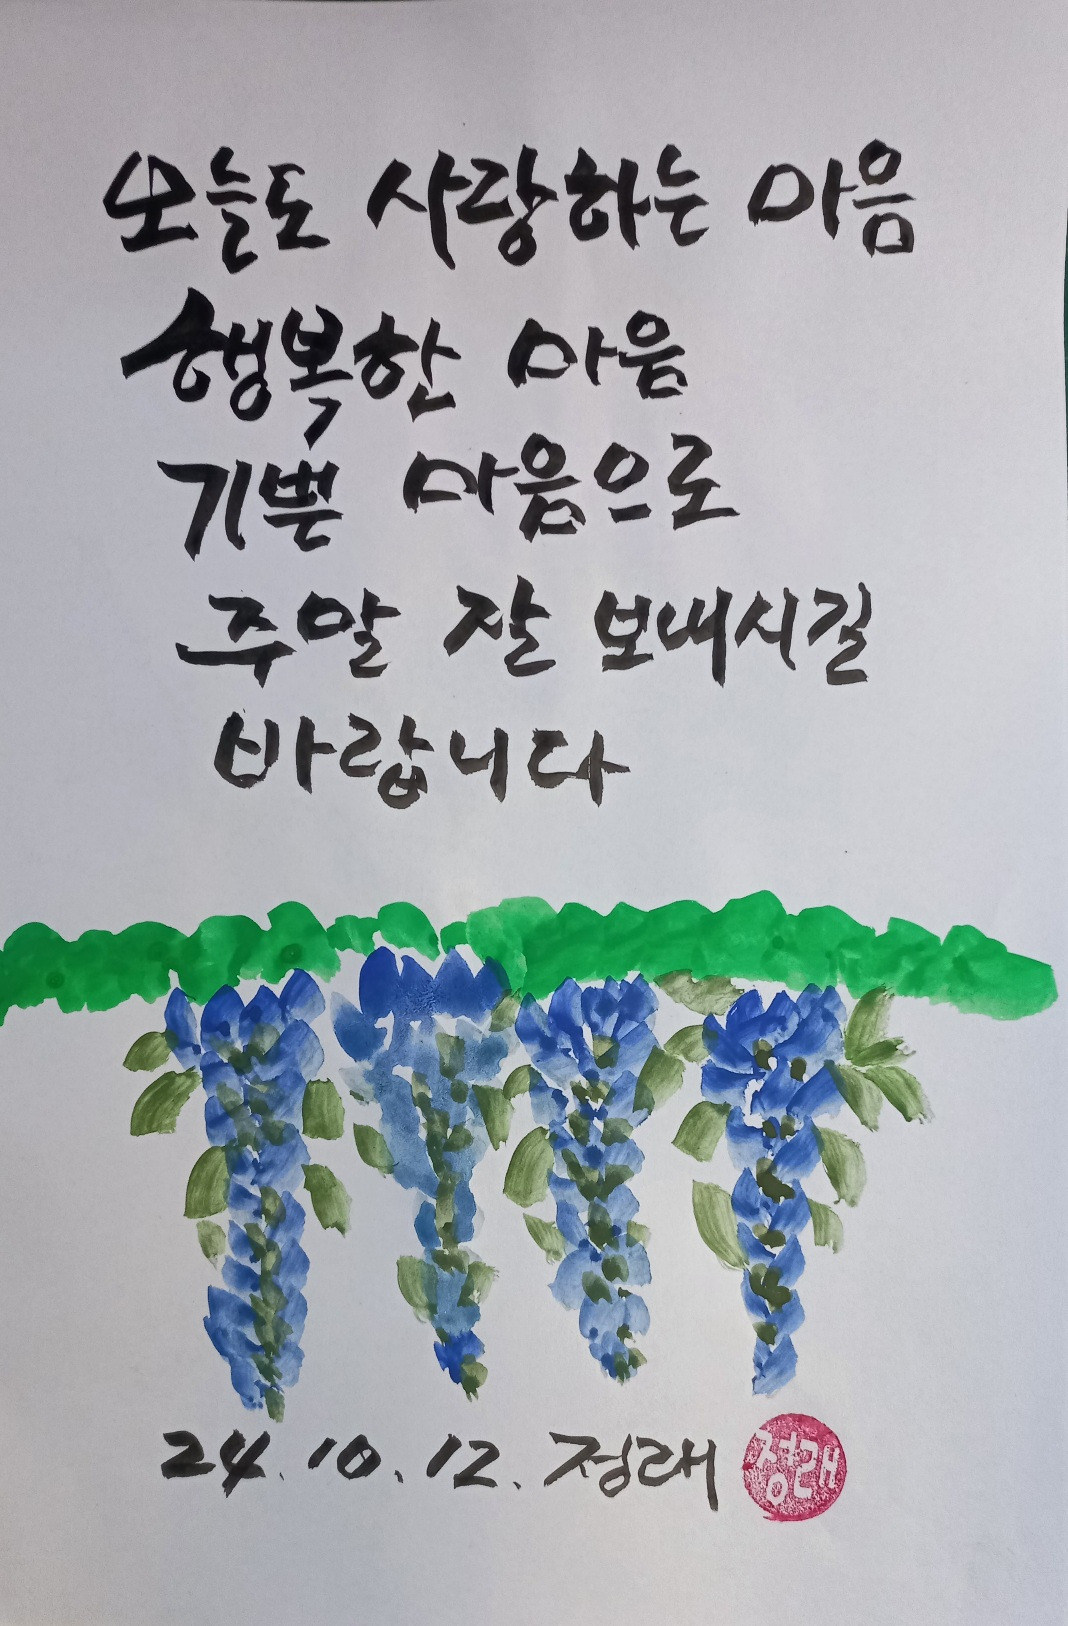 오늘도 사랑하는 마음
행복한 마음
기쁜 마음으로
주말 잘 보내시길
바랍니다
24.10.12. 정래
정래